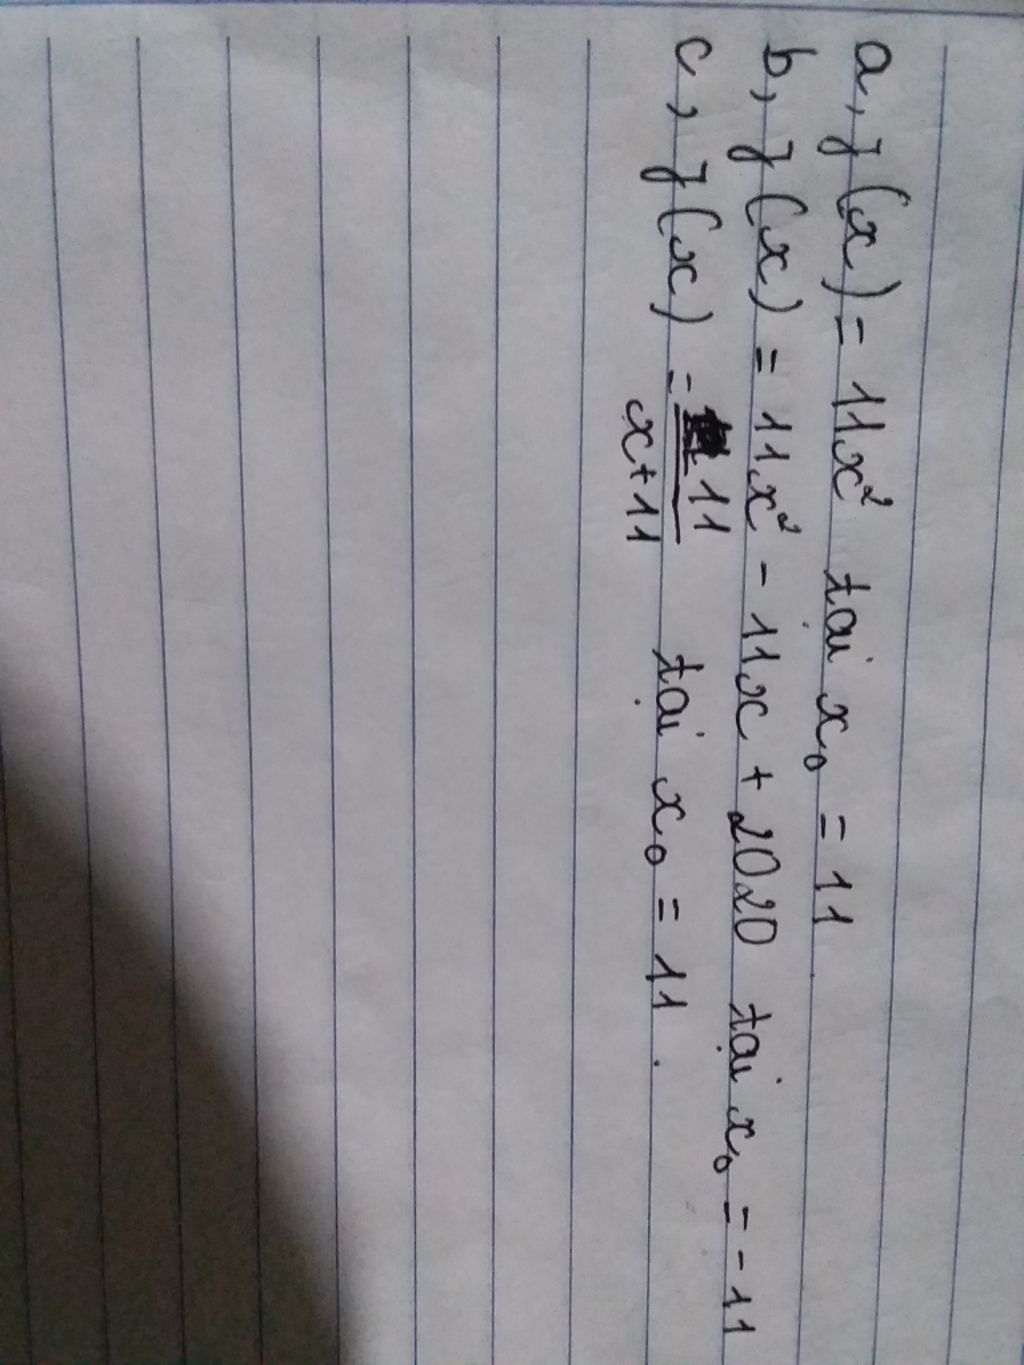 a, f(x) = 11x² tại x₀ = 11.
b, f(x) = 11x² - 11x + 2020 tại x₀ = -11
c, f(x) = 11/(x+11) tại x₀ = 11.